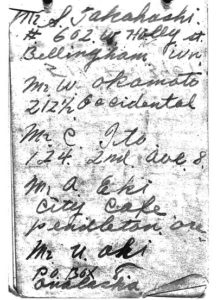 Mr S. Takahashi.
# 602. W Holly st
Bellingham, Wn
Mr W. Okamoto
212½ Occidental
Mr C Ito
124. 2nd ave. S
Mr A. Eki
City Cafe
Pendleton ore
Mr U. Oki
P.O. Box
Onalaska